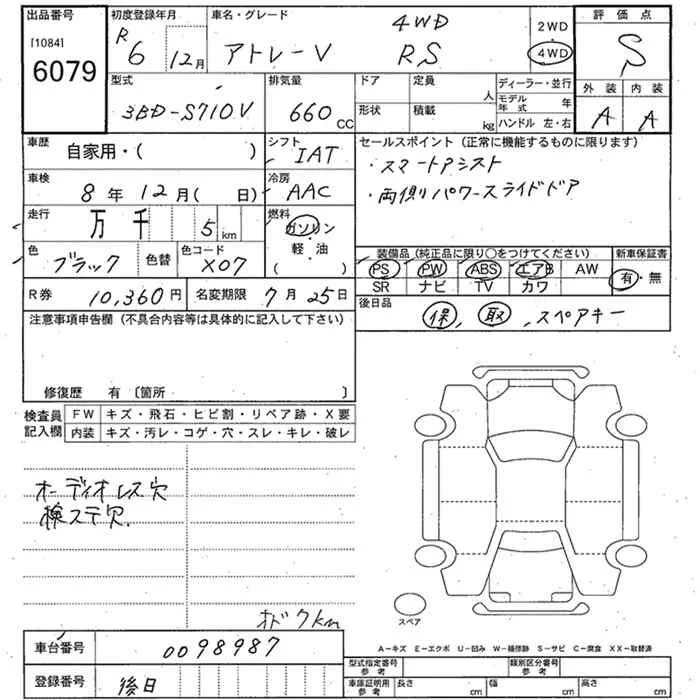 出品番号
[1084]
6079
初度登録年月
R6 12月
車名・グレード
アトレーV 4WD RS
2WD
4WD
評価点
S
外装 内装
A A
型式
3BD-S710V
排気量
660 CC
ドア 定員 人
形状 積載 kg
ディーラー・並行
モデル年式 年
ハンドル 左・右
車歴
自家用・( )
シフト
IAT
セールスポイント (正常に機能するものに限ります)
・スマートアシスト
・両側パワースライドドア
車検
8年 12月( 日)
冷房
AAC
走行
万 千 5 km
燃料
ガソリン
・
軽・油
( )
色
ブラック
色替
色コード
X07
装備品 (純正品に限り○をつけてください)
PS PW ABS エアB AW
SR ナビ TV カワ
新車保証書
有・無
R券 10,360円
名変期限 7月25日
後日品
保, 取, スペアキー
注意事項申告欄 (不具合内容等は具体的に記入して下さい)
修復歴 有 〔箇所 〕
検査員記入欄
FW キズ・飛石・ヒビ割・リペア跡・X要
内装 キズ・汚レ・コゲ・穴・スレ・キレ・破レ
オーディオレス穴
検ステ欠.
オドクkm
スペア
A-キズ E-エクボ U-凹み W-補修跡 S-サビ C-腐食 XX-取替済
車台番号 0098987
登録番号 後日
型式指定番号 参考
類別区分番号 参考
車庫証明用 参考
長さ cm 幅 cm 高さ cm